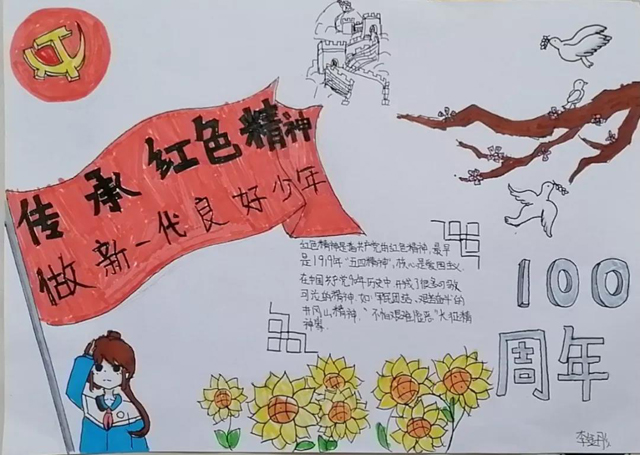 传承红色精神
做新一代良好少年
红色精神是指共产党的红色精神，最早
是1919年“五四精神”，核心是爱国主义。
在中国共产党的年历史中，形成了很多可歌
可泣的精神，如：“军民团结、艰苦奋斗”的
井冈山精神，“不怕艰难险恶”大征精
神等。
100
周年